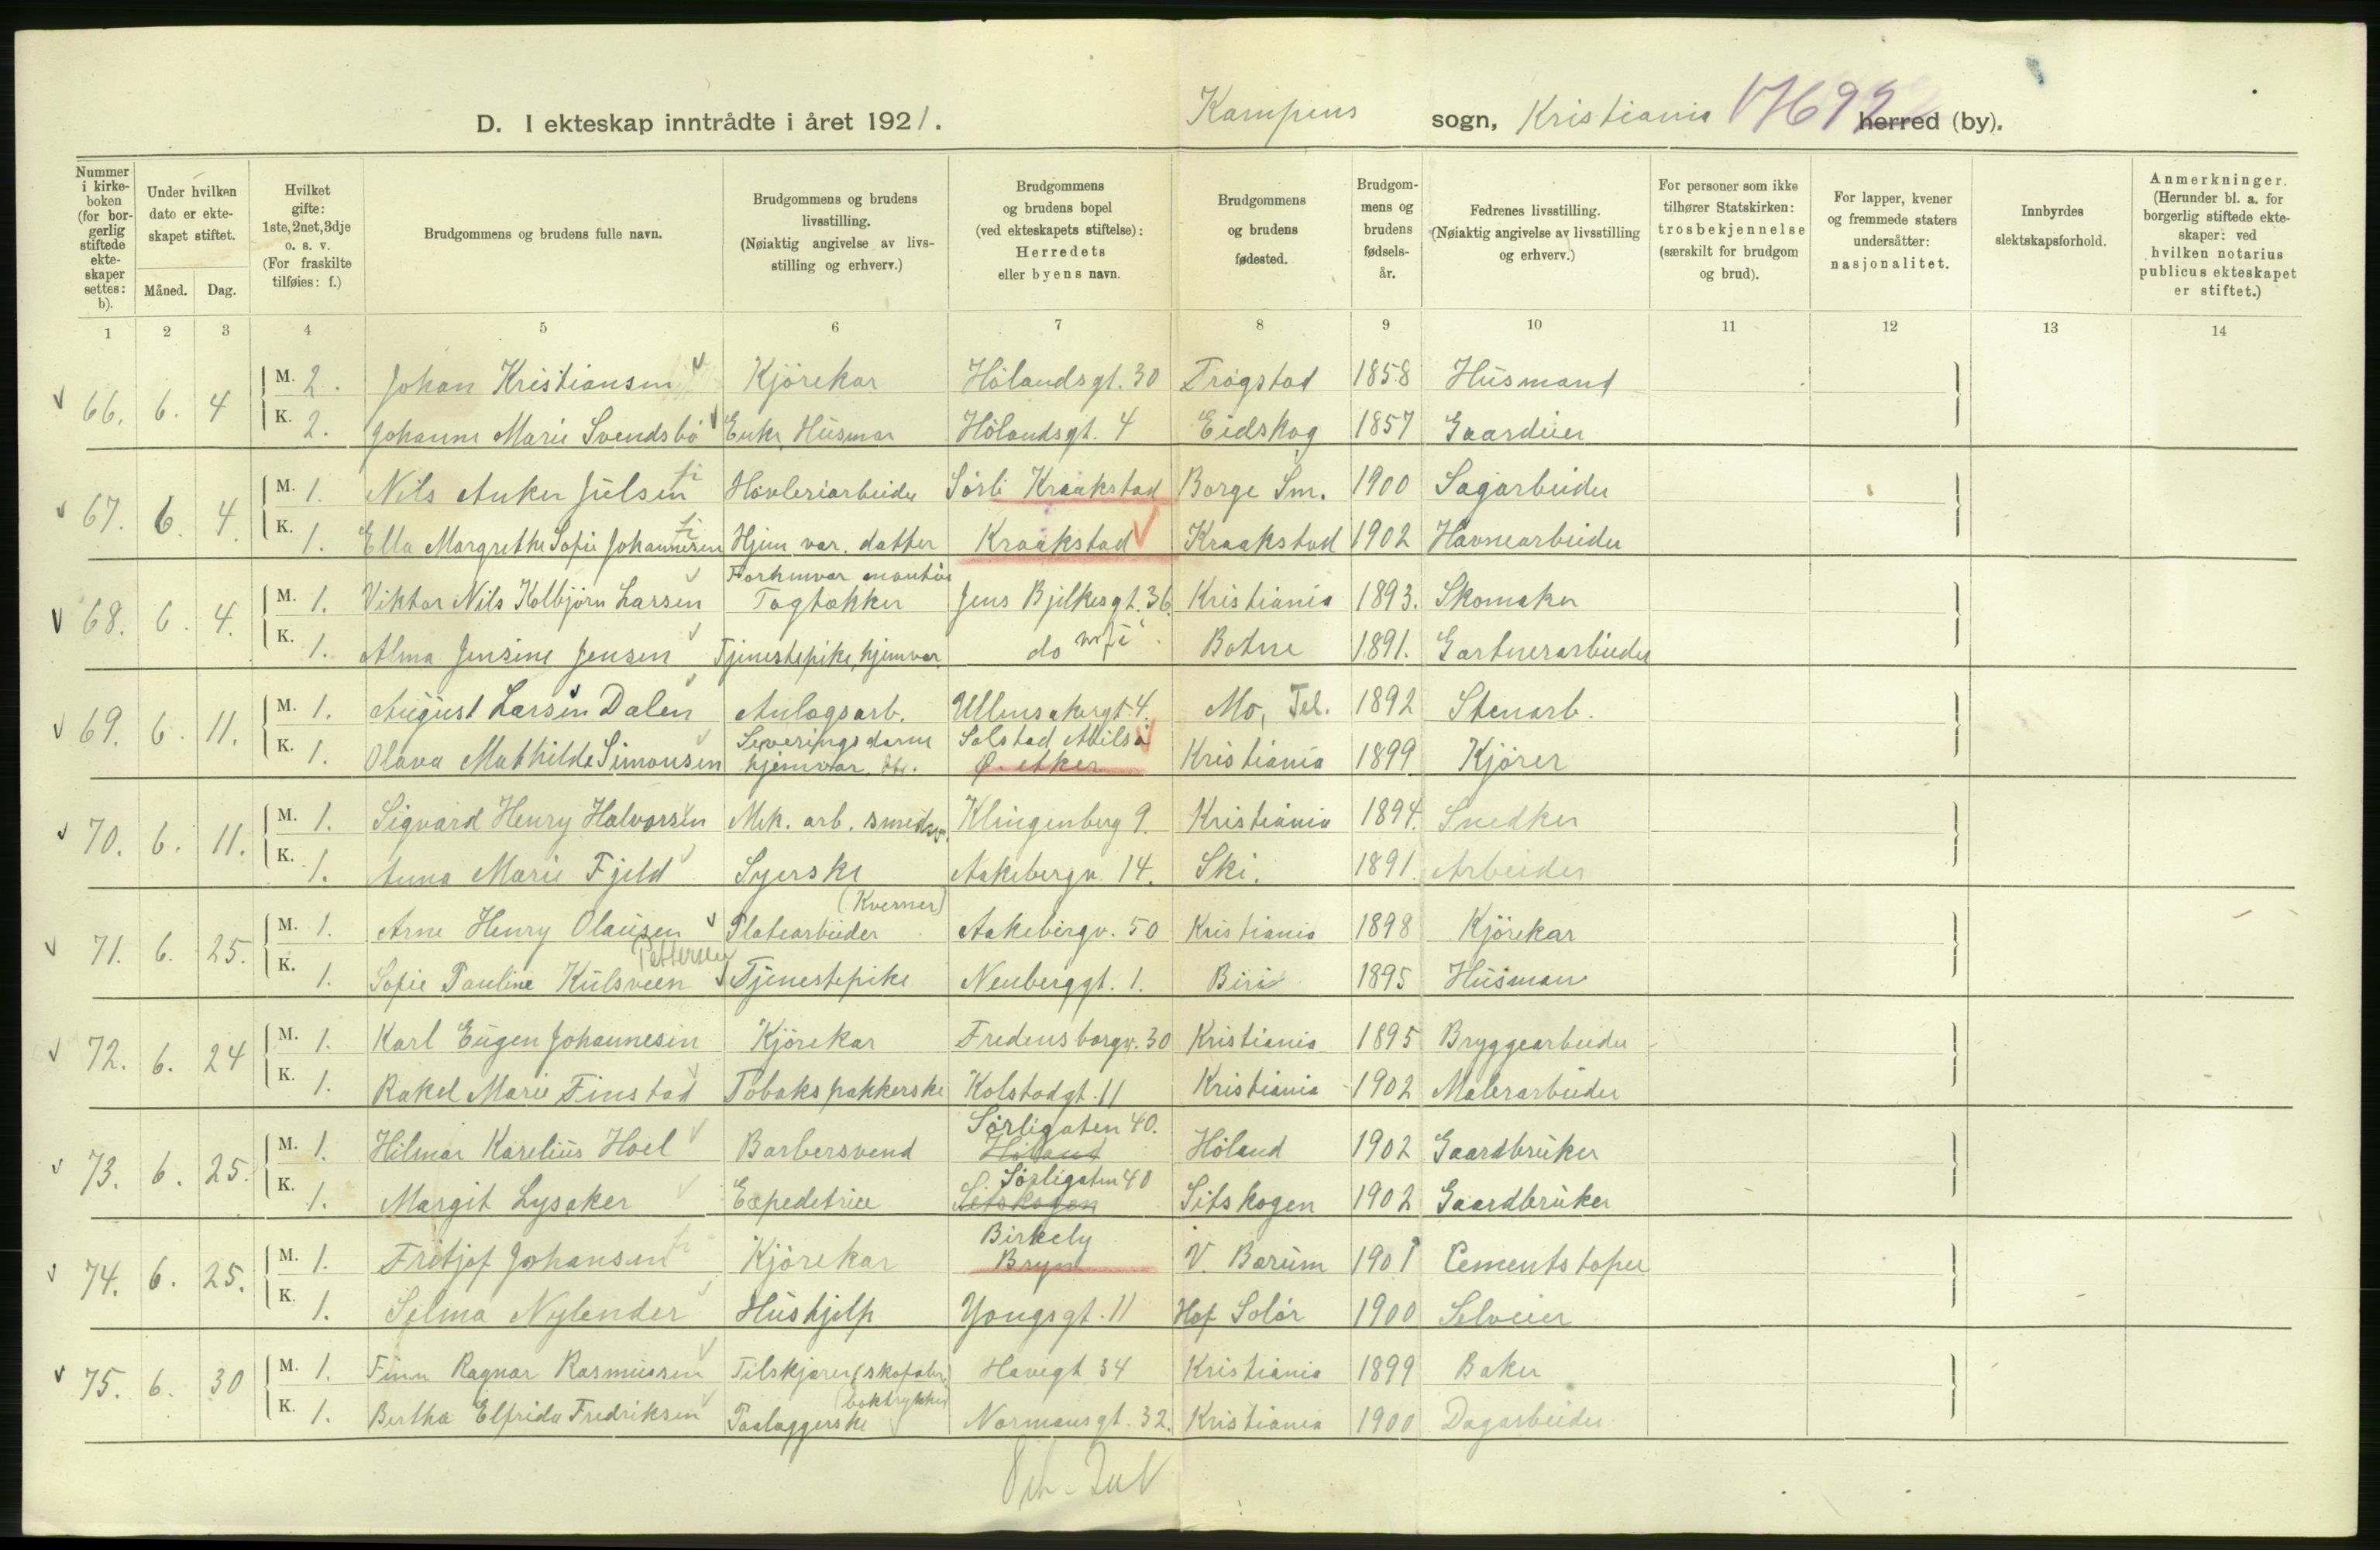 D. I ekteskap inntrådte i året 1921. Kampens sogn, Kristiania herred (by). 17692
Nummer i kirkeboken (for borgerlig stiftede ekteskaper settes: b).
Under hvilken dato er ekteskapet stiftet.
Måned. Dag.
Hvilket gifte: 1ste, 2net, 3dje o. s. v. (For fraskilte tilføies: f.)
Brudgommens og brudens fulle navn.
Brudgommens og brudens livsstilling. (Nøiaktig angivelse av livsstilling og erhverv.)
Brudgommens og brudens bopel (ved ekteskapets stiftelse): Herredets eller byens navn.
Brudgommens og brudens fødested.
Brudgommens og brudens fødselsår.
Fedrenes livsstilling. (Nøiaktig angivelse av livsstilling og erhverv.)
For personer som ikke tilhører Statskirken: trosbekjennelse (særskilt for brudgom og brud).
For lapper, kvener og fremmede staters undersåtter: nasjonalitet.
Innbyrdes slektskapsforhold.
Anmerkninger. (Herunder bl. a. for borgerlig stiftede ekteskaper: ved hvilken notarius publicus ekteskapet er stiftet.)
1 2 3 4 5 6 7 8 9 10 11 12 13 14
66. 6. 4 M. 2. Johan Kristiansen Kjörekar Hölandsgt. 30 Trögstad 1858 Husmand
K. 2. Johanne Marie Svendsbö Enke, Husmor Hölandsgt. 4 Eidskog 1857 Gaardeier
67. 6. 4. M. 1. Nils Anker Julsen Hövleriarbeider Sörli Kraakstad Borge Sm. 1900 Sagarbeider
K. 1. Ella Margrethe Sofie Johannesen Hjem. vær. datter Kraakstad Kraakstad 1902 Havnearbeider
68. 6. 4. M. 1. Viktor Nils Kolbjörn Larsen Forhenvær montör Tagtækker Jens Bjelkesgt. 36. Kristiania 1893. Skomaker
K. 1. Alma Jensine Jensen Tjenestepike, hjemvær. do Botne 1891. Gartnerarbeider
69. 6. 11. M. 1. August Larsen Dalen Anlægsarb. Ullensakergt. 4. Mo, Tel. 1892 Stenarb.
K. 1. Olava Mathilde Simonsen Serveringsdame hjemvær. dtr. Solstad Ö. Aker Kristiania 1899 Kjörer
70. 6. 11. M. 1. Sigvard Henry Halvorsen Mek. arb. smedsv. Klingenberg 9. Kristiania 1894. Snedker
K. 1. Anna Marie Fjeld Syerske Aakebergv. 14. Ski. 1891. Arbeider
71. 6. 25. M. 1. Arne Henry Olausen Platearbeider (Kverner) Aakebergv. 50 Kristiania 1898 Kjörekar
K. 1. Sofie Pauline Kulsveen Pettersen Tjenestepike Neuberggt. 1. Biri 1895 Husman
72. 6. 24 M. 1. Karl Eugen Johannesen Kjörekar Fredensborgv. 30 Kristiania 1895 Bryggearbeider
K. 1. Rakel Marie Finstad Tobakspakkerske Kolstadgt. 11 Kristiania 1902 Malerarbeider
73. 6. 25. M. 1. Hilmar Karelius Hoel Barbersvend Sörligaten 40. Höland Höland 1902 Gaardbruker
K. 1. Margit Lysaker Expeditrice Sörligaten 40 Setskogen Sitskogen 1902 Gaardbruker
74. 6. 25. M. 1. Fritjof Johansen Kjörekar Birkely Bryn V. Bærum 1901 Cementstöper
K. 1. Selma Nylender Hushjelp Yongsgt. 11 Hof Solör 1900 Selveier
75. 6. 30 M. 1. Finn Ragnar Rasmussen Tilskjærer (skofabr. Havegt 34 Kristiania 1899 Baker
K. 1. Bertha Elfrida Fredriksen Paalæggerske (boktrykkeri Normansgt. 32. Kristiania 1900 Dagarbeider